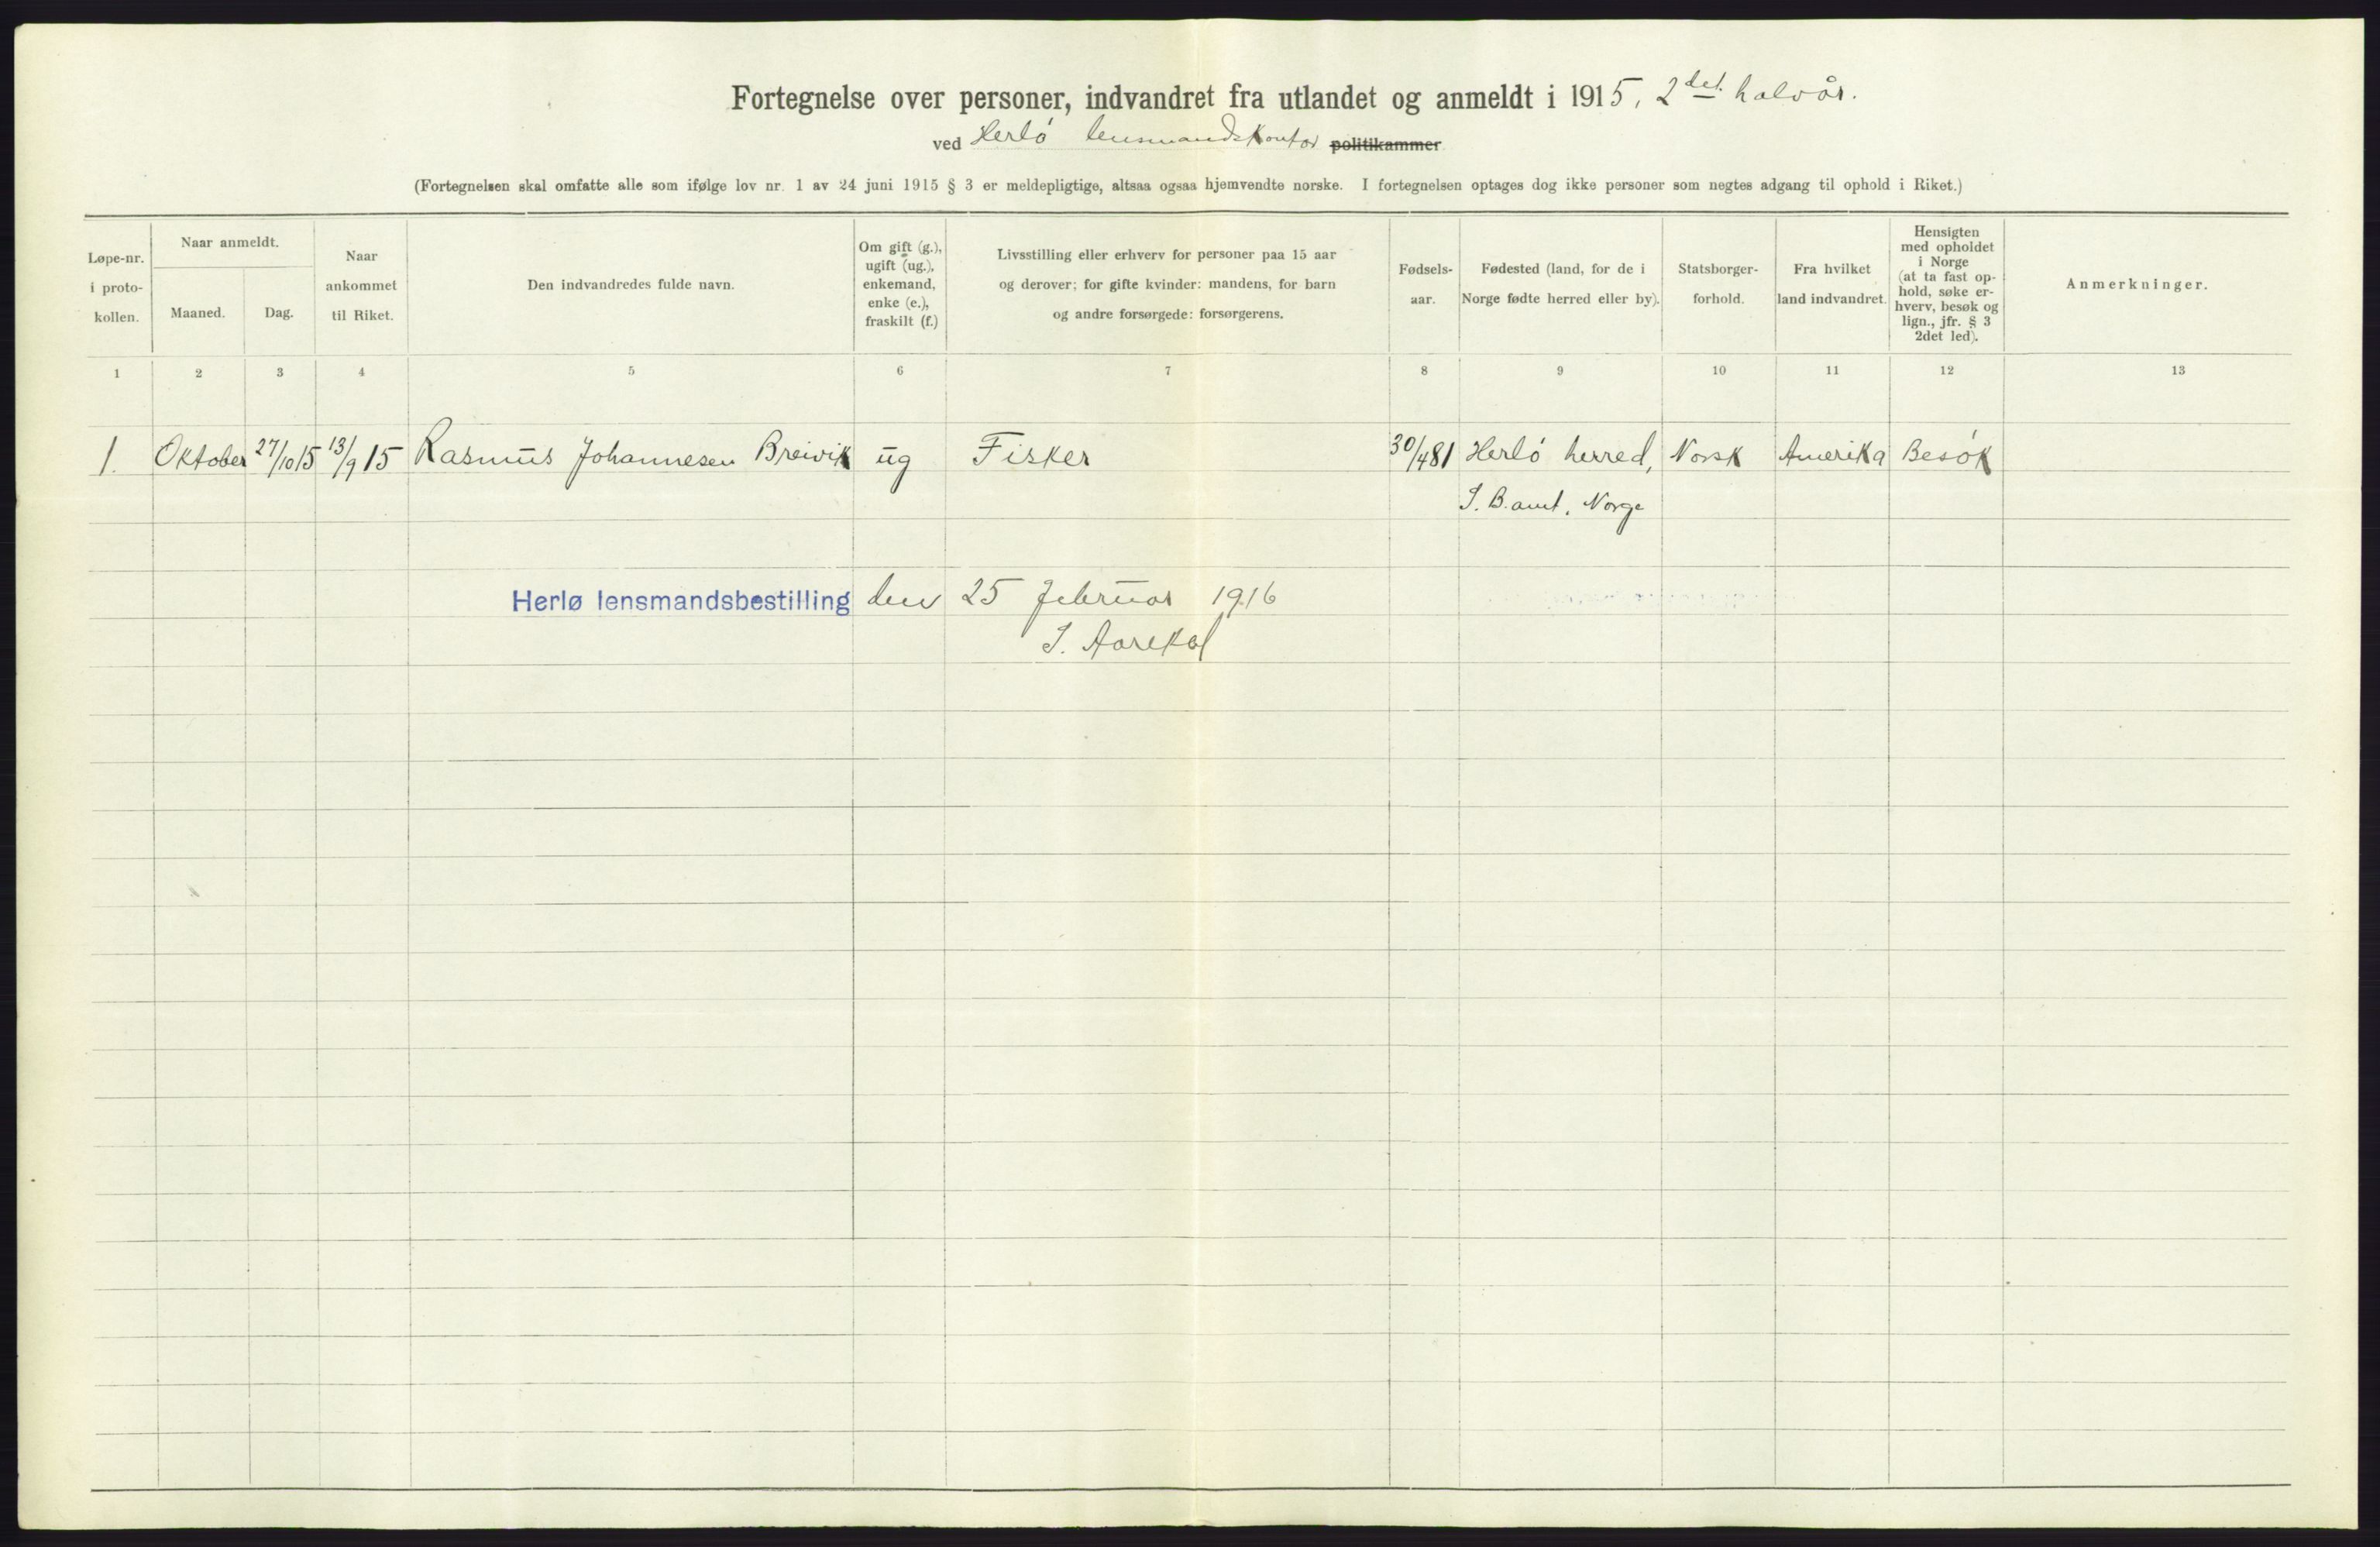 Fortegnelse over personer, indvandret fra utlandet og anmeldt i 1915, 2det halvår.
ved Herlø lensmandskontor politikammer
(Fortegnelsen skal omfatte alle som ifølge lov nr. 1 av 24 juni 1915 § 3 er meldepligtige, altsaa ogsaa hjemvendte norske. I fortegnelsen optages dog ikke personer som negtes adgang til ophold i Riket.)
Løpe-nr.
i proto-
kollen.
Naar anmeldt.
Maaned.
Dag.
Naar
ankommet
til Riket.
Den indvandredes fulde navn.
Om gift (g.),
ugift (ug.),
enkemand,
enke (e.),
fraskilt (f.)
Livsstilling eller erhverv for personer paa 15 aar
og derover; for gifte kvinder: mandens, for barn
og andre forsørgede: forsørgerens.
Fødsels-
aar.
Fødested (land, for de i
Norge fødte herred eller by).
Statsborger-
forhold.
Fra hvilket
land indvandret.
Hensigten
med opholdet
i Norge
(at ta fast op-
hold, søke er-
hverv, besøk og
lign., jfr. § 3
2det led).
Anmerkninger.
1 2 3 4 5 6 7 8 9 10 11 12 13
1. Oktober 27/10 15 13/9 15 Rasmus Johannesen Breivik ug Fisker 30/4 81 Herlø herred, Norsk Amerika Besøk
S. B. amt, Norge
Herlø lensmandsbestilling den 25 Februar 1916